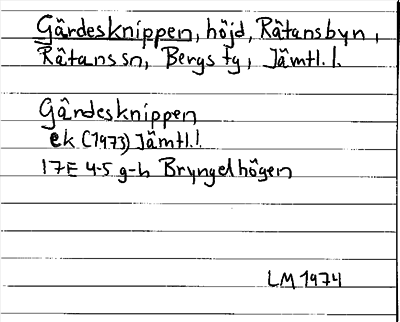 Gårdesknippen, höjd, Rätansbyn,
Rätans sn, Bergs fg, Jämtl. l.
Gårdesknippen
ek (1973) Jämtl. l.
17E 4-5 g-h Bryngelhögen
LM 1974